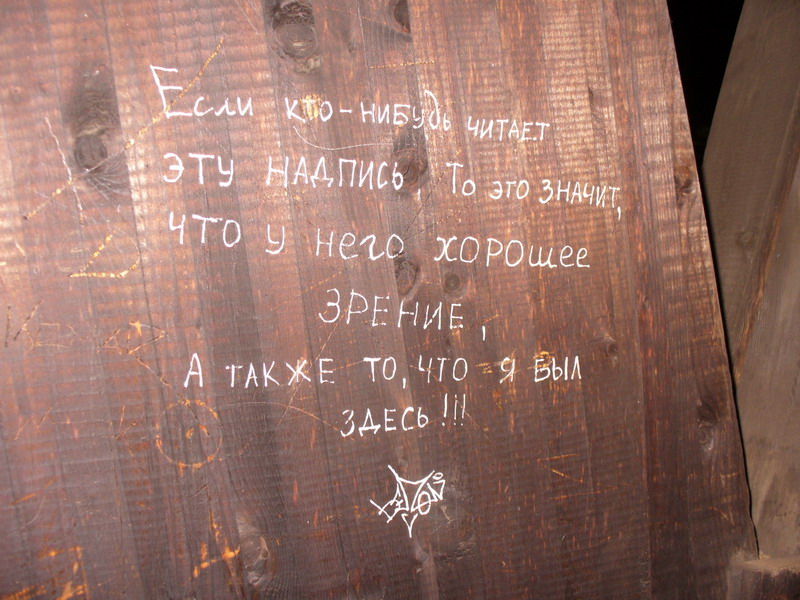 Если кто-нибудь читает
эту надпись, то это значит,
что у него хорошее
зрение,
а также то, что я был
здесь!!!